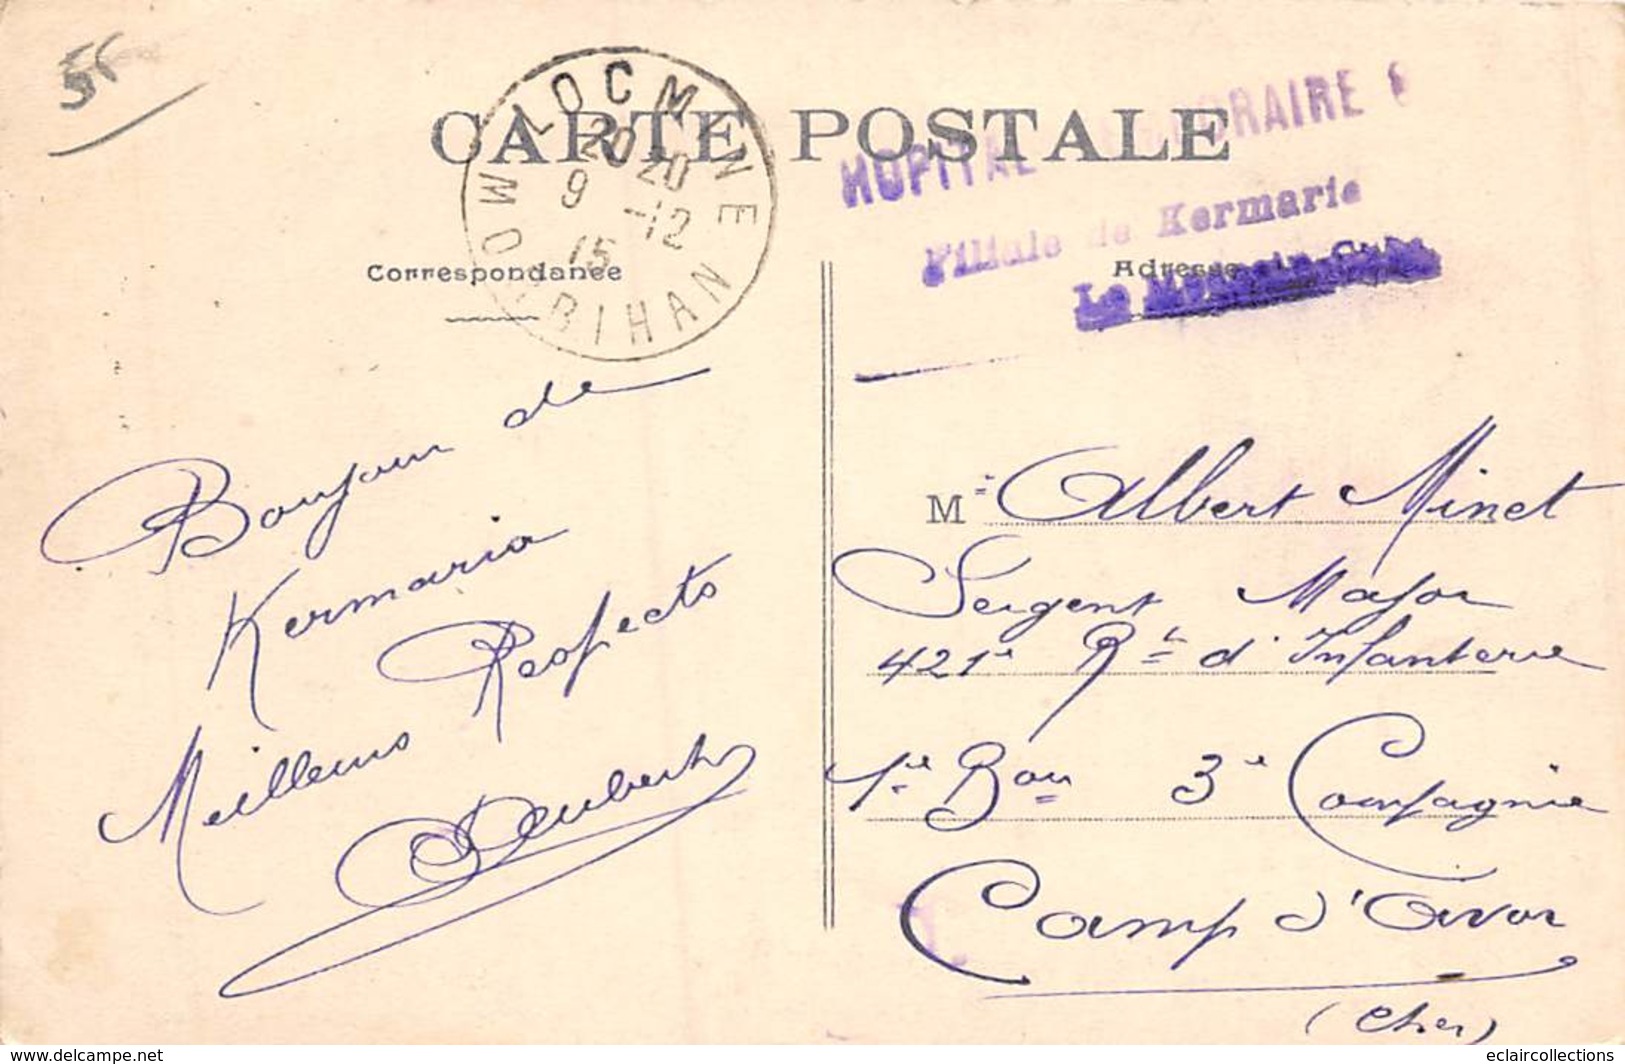 56
CARTE POSTALE
LOCMINE
20 20
9 -12
15
MORBIHAN
HOPITAL TEMPORAIRE
Filiale de Kermarie
Correspondance
Adresse
Bonjour de
Kermaria
Meilleurs Respects
M Albert Minet
Sergent Major
421e Rt d'Infanterie
1re Bon 3e Compagnie
Camp d'Avor
(Cher)
www.delcampe.net
eclaircollections